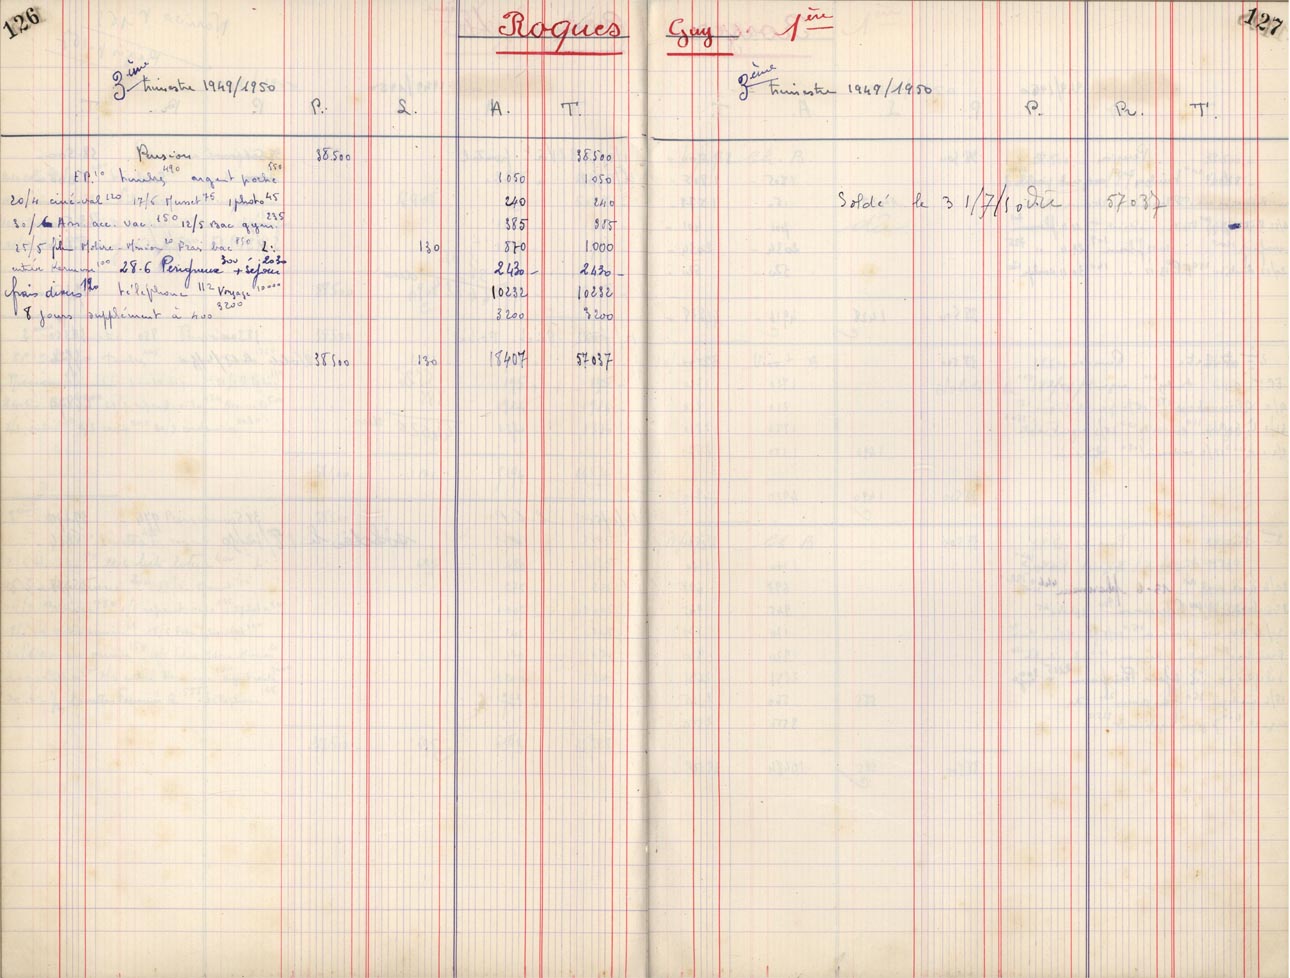 126
Roques
3ème trimestre 1949/1950
P. L. A. T.
Pension 38.500 38.500
E.P. 10 timbres 490 argent poche 550 1050 1050
20/4 ciné-val 120 17/6 Musset 75 1 photo 45 240 240
30/6 Ass. acc. vac. 150 12/5 Bac gym. 235 385 385
25/5 Frais bac L: 130 870 1.000
100 28.6 Périgueux 300 + séjour 2030 2430 - 2430 -
frais divers 120 téléphone 112 Voyage 10000 10232 10232
8 jours supplément à 400 3200 3200 3200
38500 130 18407 57037
Guy. 1ère
127
3ème trimestre 1949/1950
P. R. T.
Soldé le 31/7/50 57037